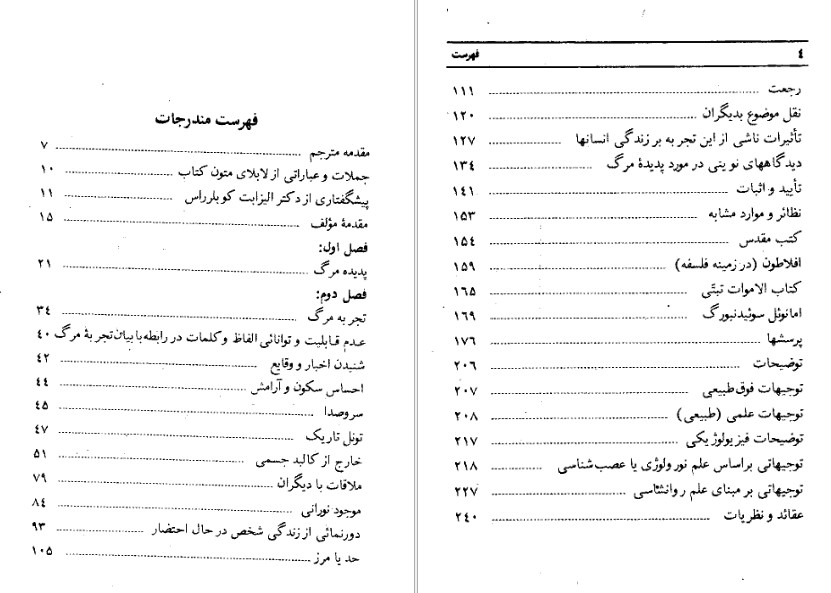 فهرست مندرجات
مقدمه مترجم ........ ۷
جملات و عباراتی از لابلای متون کتاب ........ ۱۰
پیشگفتاری از دکتر الیزابت کوبلرراس ........ ۱۱
مقدمهٔ مؤلف ........ ۱۵
فصل اول:
پدیده مرگ ........ ۲۱
فصل دوم:
تجربه مرگ ........ ۳٤
عدم قابلیت و توانائی الفاظ و کلمات در رابطه با بیان تجربهٔ مرگ ٤۰
شنیدن اخبار و وقایع ........ ٤۲
احساس سکون و آرامش ........ ٤٤
سروصدا ........ ٤۵
تونل تاریک ........ ٤۷
خارج از کالبد جسمی ........ ۵۱
ملاقات با دیگران ........ ۷۹
موجود نورانی ........ ۸٤
دورنمائی از زندگی شخص در حال احتضار ........ ۹۳
حد یا مرز ........ ۱۰۵
٤ فهرست
رجعت ........ ۱۱۱
نقل موضوع بدیگران ........ ۱۲۰
تأثیرات ناشی از این تجربه بر زندگی انسانها ........ ۱۲۷
دیدگاههای نوینی در مورد پدیدهٔ مرگ ........ ۱۳٤
تأیید و اثبات ........ ۱٤۱
نظائر و موارد مشابه ........ ۱۵۳
کتب مقدس ........ ۱۵٤
افلاطون (در زمینه فلسفه) ........ ۱۵۹
کتاب الاموات تبتّی ........ ۱٦۵
امانوئل سوئیدنبورگ ........ ۱٦۹
پرسشها ........ ۱۷٦
توضیحات ........ ۲۰٦
توجیهات فوق طبیعی ........ ۲۰۷
توجیهات علمی (طبیعی) ........ ۲۰۸
توضیحات فیزیولوژیکی ........ ۲۱۷
توجیهاتی براساس علم نورولوژی یا عصب شناسی ........ ۲۱۸
توجیهاتی بر مبنای علم روانشناسی ........ ۲۲۷
عقائد و نظریات ........ ۲٤۰